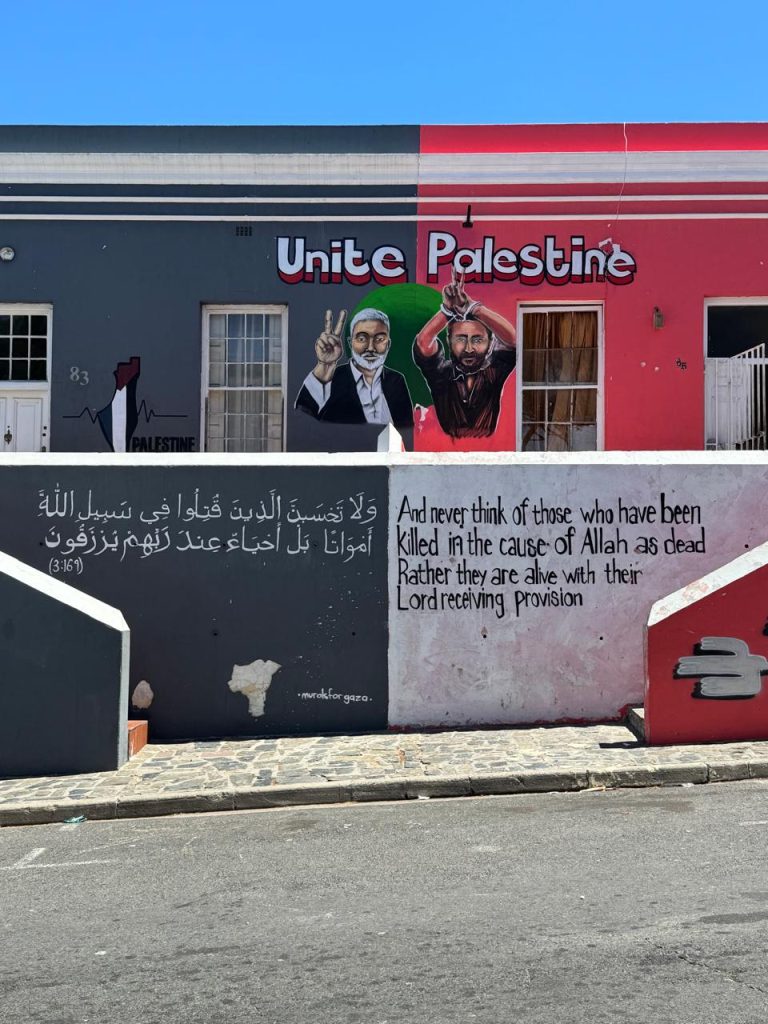 Unite Palestine
83
85
PALESTINE
وَلَا تَحْسَبَنَّ الَّذِينَ قُتِلُوا فِي سَبِيلِ اللَّهِ
أَمْوَاتًا بَلْ أَحْيَاءٌ عِندَ رَبِّهِمْ يُرْزَقُونَ
(3:169)
And never think of those who have been
killed in the cause of Allah as dead
Rather they are alive with their
Lord receiving provision
.muralsforgaza.